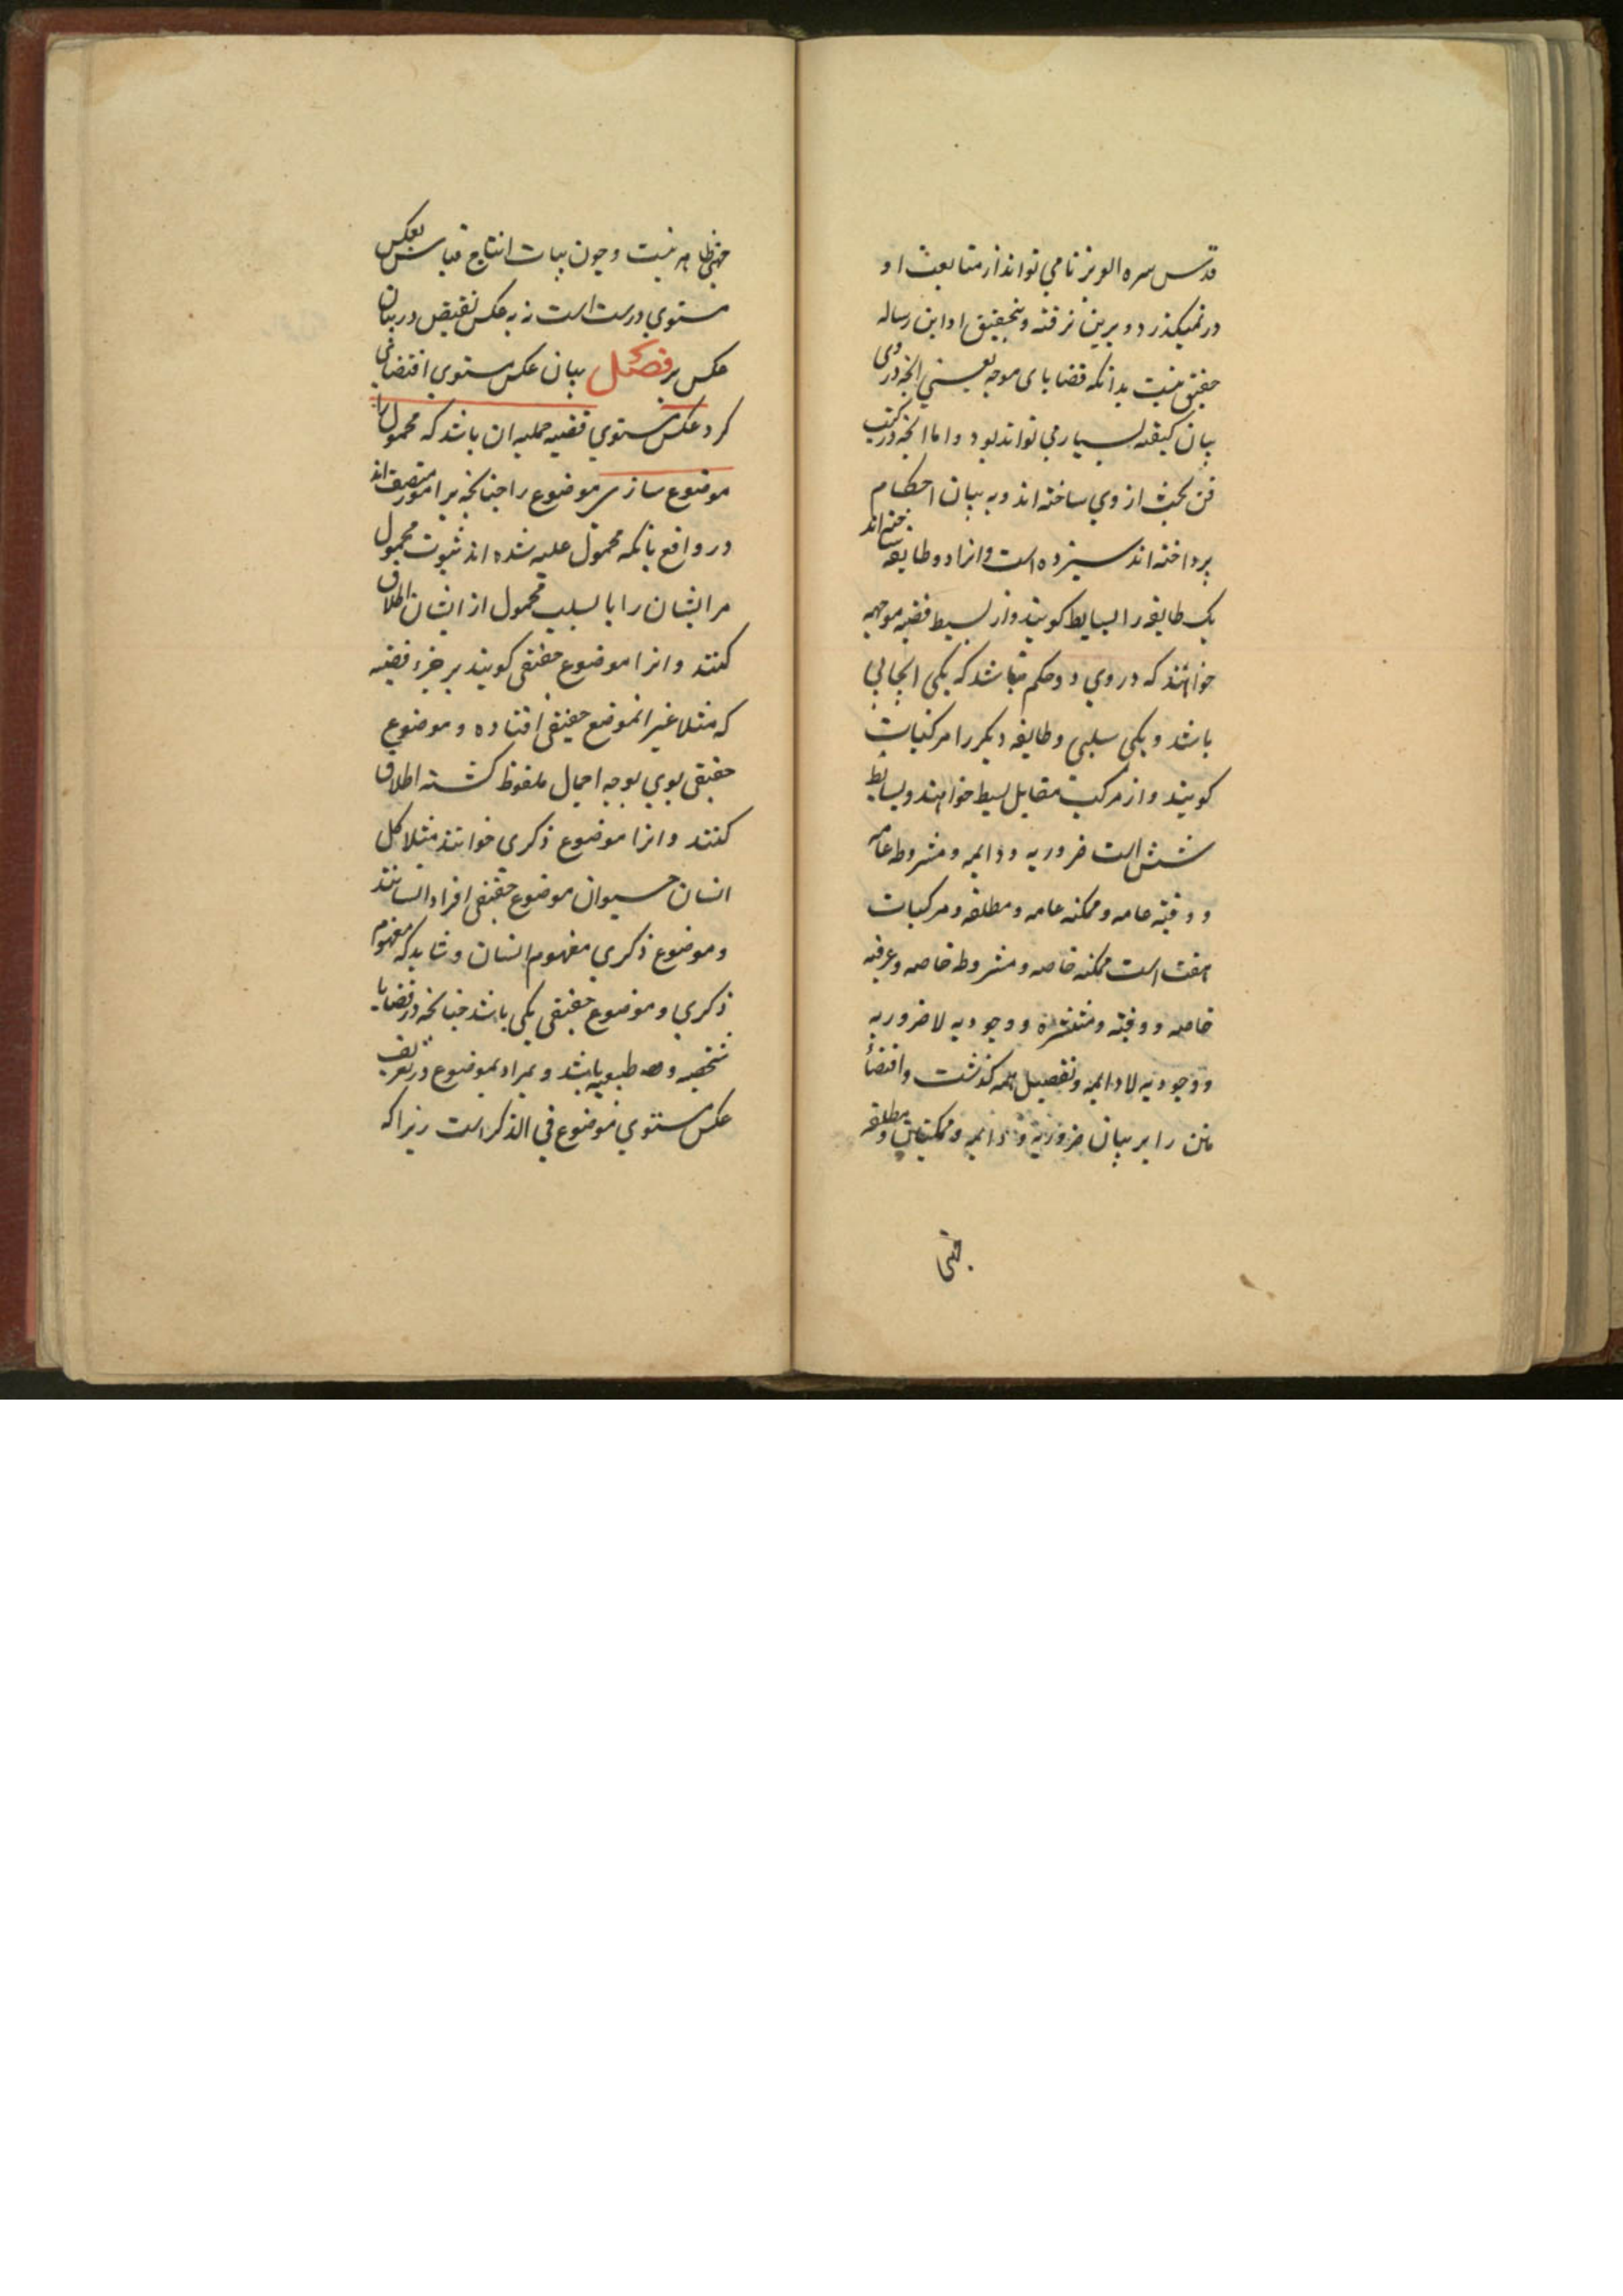 قدس سره العزیز تا می تواند از متابعت او
در نمیکذرد و برین نرفته و بتحقیق او این رساله
حقیق نیست بدانکه قضایای موجه یعنی انچه در وی
بیان کیفیه بسیار می تواند بود و اما انچه در کتب
فن بحث از وی ساخته اند و به بیان احکام
پرداخته اند سیزده است و انرا دو طایفه ساخته اند
یک طایفه را بسایط کویند و از بسیط قضیه موجهه
خواهند که در وی دو حکم نباشد که یکی ایجابی
باشد و یکی سلبی و طایفه دیکر را مرکبات
کویند و از مرکب مقابل بسیط خواهند و بسایط
شش است ضروریه و دایمه و مشروطه عامه
و وقتیه عامه و ممکنه عامه و مطلقه و مرکبات
هفت است ممکنه خاصه و مشروطه خاصه و عرفیه
خاصه و وقتیه و منتشره و وجودیه لا ضروریه
و وجودیه لا دایمه و تفصیل همه کذشت و اقتضاء
متن را بر بیان ضروریه و دایمه و ممکنتین و مطلقه
چندی ظاهر نیست و چون بیات انتاج قیاس بعکس
مستوی درست است نه به عکس نقیض در بیان
عکس بر فصل بیان عکس مستوی اقتضای
کرد عکس مستوی قضیه حملیه ان باشد که محمول را
موضوع سازی و موضوع را چنانچه بر امور متصف اند
در واقع بانکه محمول علیه شده اند ثبوت محمول
مر ایشان را یا بسلب محمول از ایشان اطلاق
کنند و انرا موضوع حقیقی کویند بر جزء قضیه
که مثلا غیر انموضع حقیقی افتاده و موضوع
حقیقی بوی بوجه اجمال ملفوظ کشته اطلاق
کنند و انرا موضوع ذکری خوانند مثلا کل
انسان حیوان موضوع حقیقی افراد انسانند
و موضوع ذکری مفهوم انسان و شاید که مفهوم
ذکری و موضوع حقیقی یکی باشد چنانچه در قضایا
شخصیه و طبیعیه باشد و مراد بموضوع در تعریف
عکس مستوی موضوع فی الذکر است زیرا که